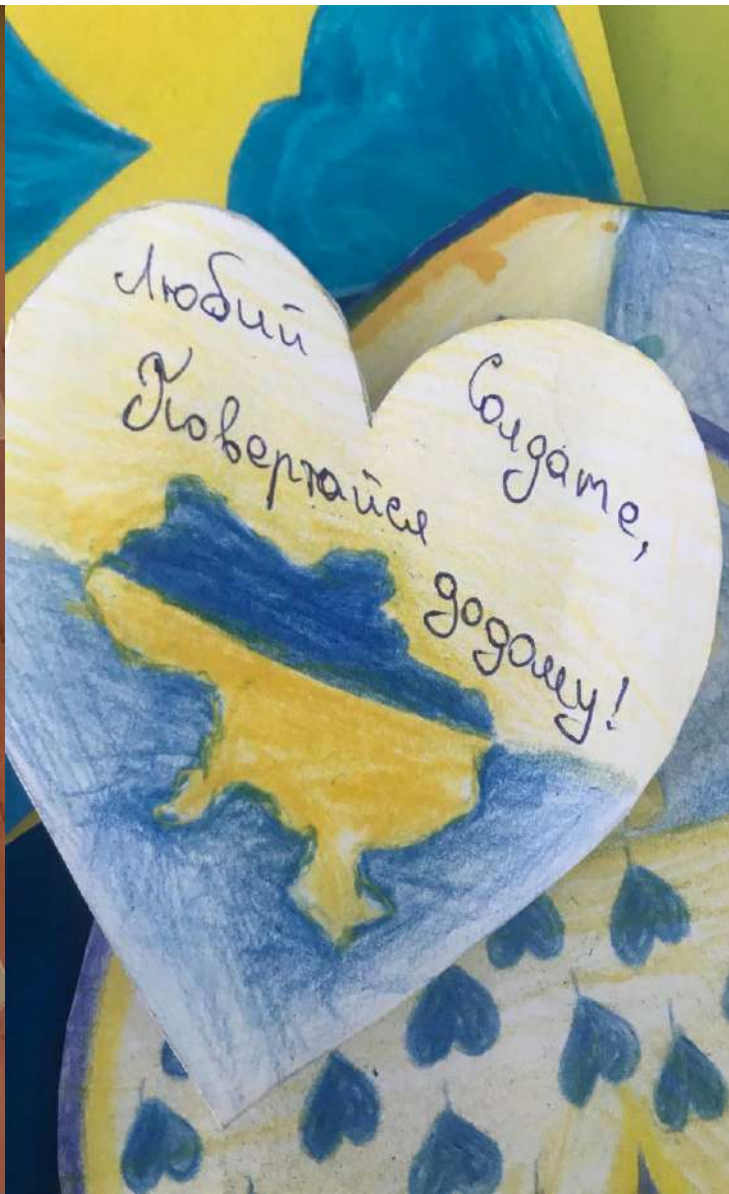 Любий
Солдате,
Повертайся
додому!